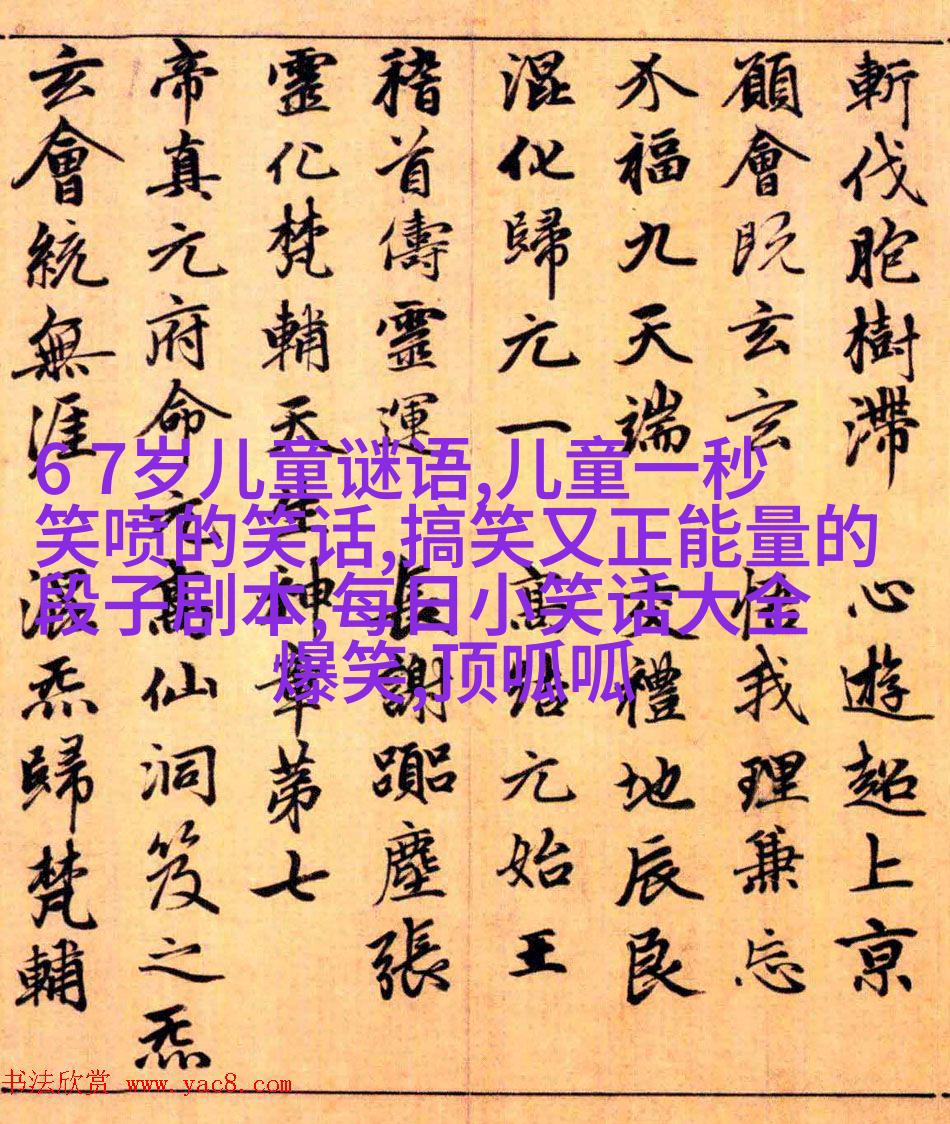 斬伐胞樹滯 心遊超上京
願會既玄玄 悟我理兼忘
介福九天端 交禮地辰良
混化歸元一 高結元始王
稽首儔靈運 長謝躡塵張
靈化梵輔天 生神章第七
帝真元府命元高仙洞笈之炁
玄會統無涯 混炁歸梵輔
6 7岁儿童谜语,儿童一秒
笑喷的笑话,搞笑又正能量的
段子剧本,每日小笑话大全
爆笑,顶呱呱
书法欣赏 www.yac8.com